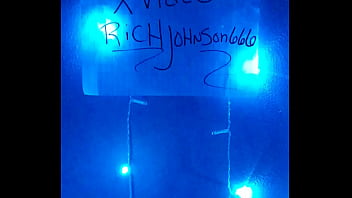 X VIDEO
RiCHJOHNSON666